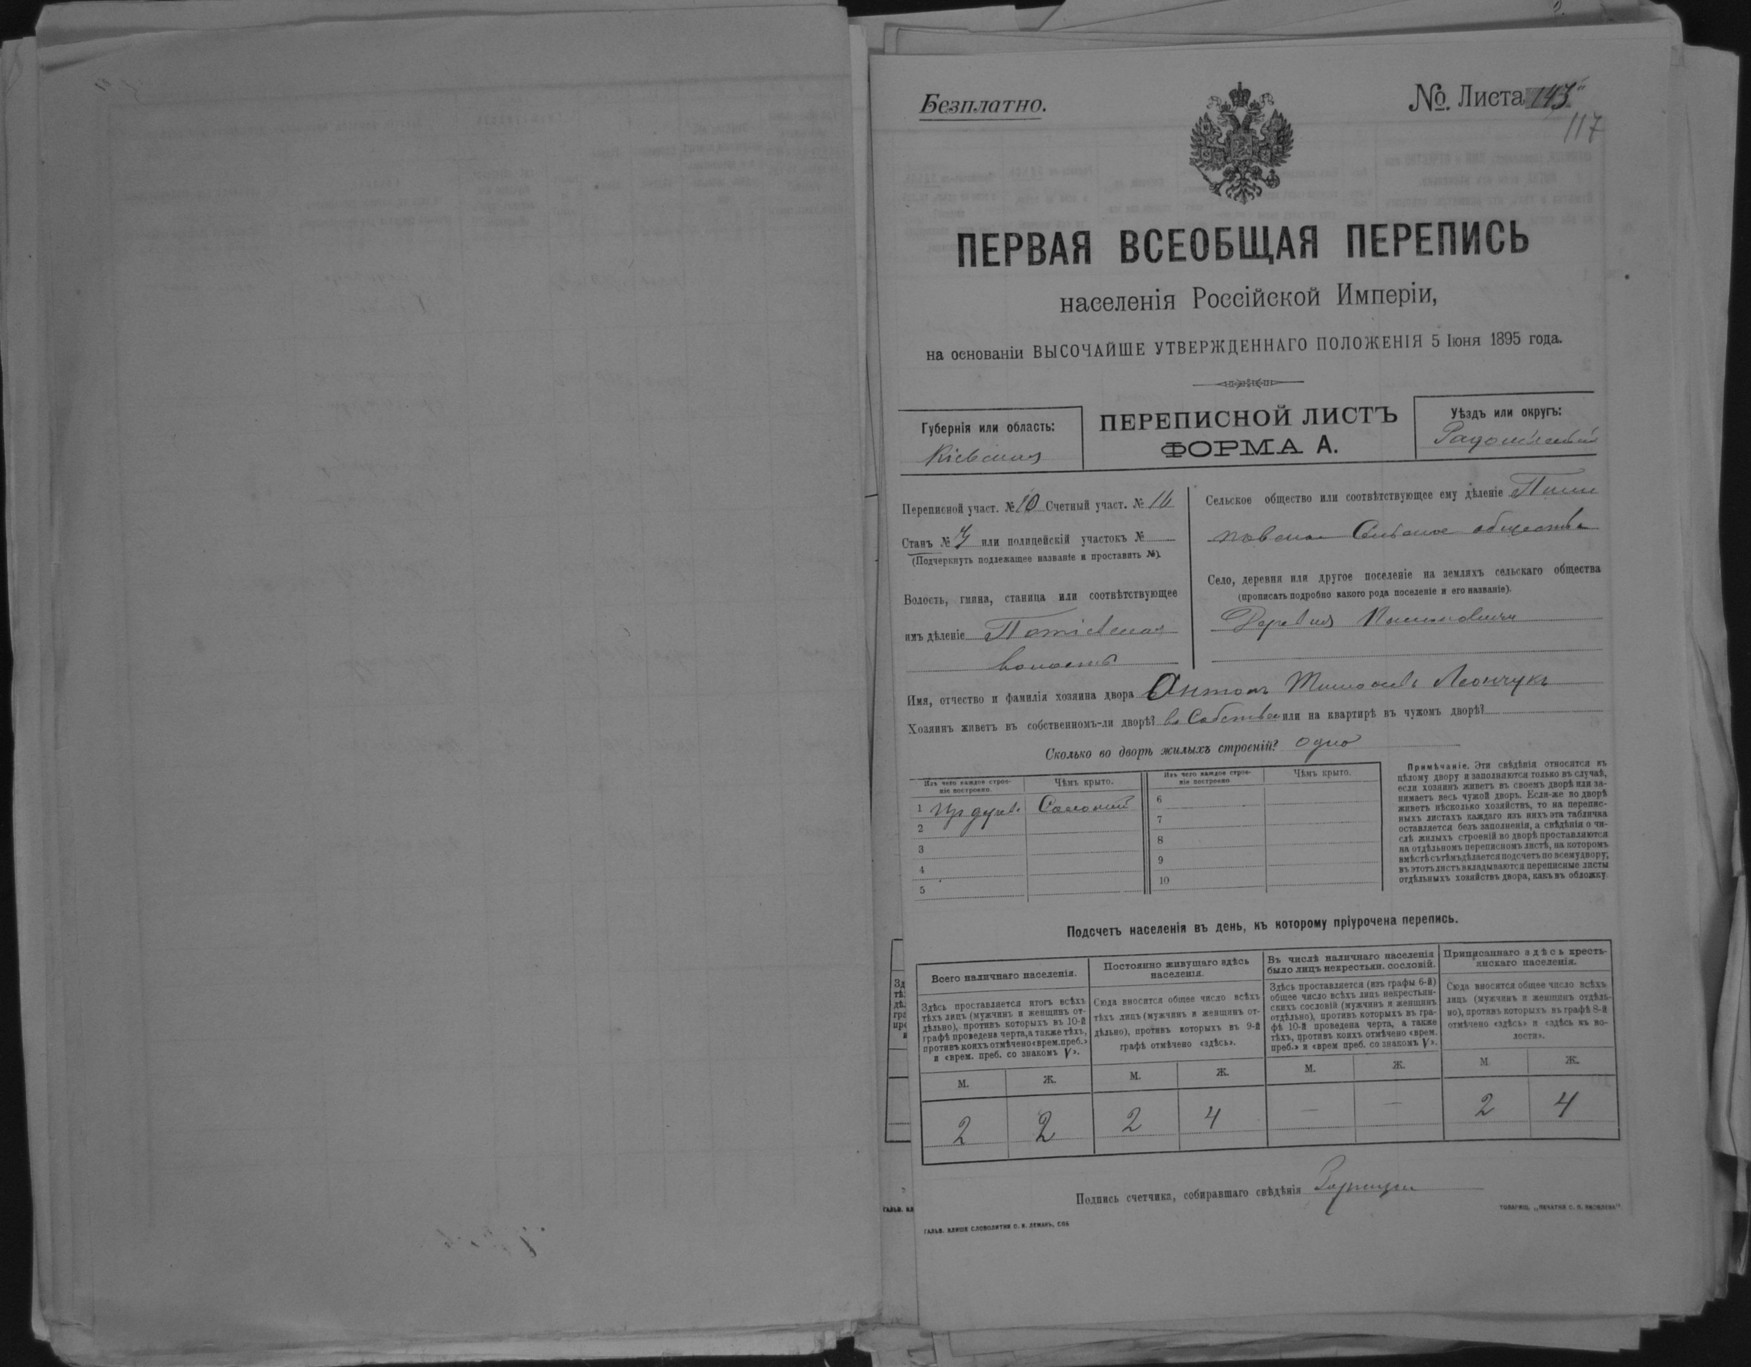 Безплатно.
№. Листа 143
117
ПЕРВАЯ ВСЕОБЩАЯ ПЕРЕПИСЬ
населенія Россійской Имперіи,
на основаніи ВЫСОЧАЙШЕ УТВЕРЖДЕННАГО ПОЛОЖЕНІЯ 5 Іюня 1895 года.
Губернія или область:
Кіевская
ПЕРЕПИСНОЙ ЛИСТЪ
ФОРМА А.
Уѣздъ или округъ:
Радомысльскій
Переписной участ. № 10 Счетный участ. № 14
Станъ № или полицейскій участокъ №
(Подчеркнуть подлежащее названіе и проставить №).
Волость, гмина, станица или соотвѣтствующее
имъ дѣленіе Потіевская
волость
Сельское общество или соотвѣтствующее ему дѣленіе
Сельское общество
Село, деревня или другое поселеніе на земляхъ сельскаго общества
(прописать подробно какого рода поселеніе и его названіе).
Деревня
Имя, отчество и фамилія хозяина двора Антонъ Тимофеевъ Леончукъ
Хозяинъ живетъ въ собственномъ-ли дворѣ? въ Собствен или на квартирѣ въ чужомъ дворѣ?
Сколько во дворѣ жилыхъ строеній? одно
Изъ чего каждое строе-
ніе построено.
Чѣмъ крыто.
Изъ чего каждое строе-
ніе построено
Чѣмъ крыто.
1 Изъ дерева Соломой
2
3
4
5
6
7
8
9
10
Примѣчаніе. Эти свѣдѣнія относятся къ
цѣлому двору и заполняются только въ случаѣ,
если хозяинъ живетъ въ своемъ дворѣ или за-
нимаетъ весь чужой дворъ. Если-же во дворѣ
живетъ нѣсколько хозяйствъ, то на перепис-
ныхъ листахъ каждаго изъ нихъ эта табличка
оставляется безъ заполненія, а свѣдѣнія о чи-
слѣ жилыхъ строеній во дворѣ проставляются
на отдѣльномъ переписномъ листѣ, на которомъ
вмѣстѣ съ тѣмъ дѣлается подсчетъ по всему двору;
въ этотъ листъ вкладываются переписные листы
отдѣльныхъ хозяйствъ двора, какъ въ обложку.
Подсчетъ населенія въ день, къ которому пріурочена перепись.
Всего наличнаго населенія.
Здѣсь проставляется итогъ всѣхъ
тѣхъ лицъ (мужчинъ и женщинъ от-
дѣльно), противъ которыхъ въ 10-й
графѣ проведена черта, а также тѣхъ,
противъ коихъ отмѣчено «врем. преб.»
и «врем. преб. со знакомъ V».
Постоянно живущаго здѣсь
населенія.
Сюда вносится общее число всѣхъ
тѣхъ лицъ (мужчинъ и женщинъ от-
дѣльно), противъ которыхъ въ 9-й
графѣ отмѣчено «здѣсь».
Въ числѣ наличнаго населенія
было лицъ некрестьян. сословій.
Здѣсь проставляется (изъ графы 6-й)
общее число всѣхъ лицъ некрестьян-
скихъ сословій (мужчинъ и женщинъ
отдѣльно), противъ которыхъ въ гра-
фѣ 10-й проведена черта, а также
тѣхъ, противъ коихъ отмѣчено «врем.
преб.» и «врем преб. со знакомъ V».
Приписаннаго здѣсь кресть-
янскаго населенія.
Сюда вносится общее число всѣхъ
лицъ (мужчинъ и женщинъ отдѣль-
но), противъ которыхъ въ графѣ 8-й
отмѣчено «здѣсь» и «здѣсь въ во-
лости».
М. Ж. М. Ж. М. Ж. М Ж.
2 2 2 4 — — 2 4
Подпись счетчика, собиравшаго свѣдѣнія
ГАЛЬВ. КЛИШЕ СЛОВОЛИТНИ О. И. ЛЕМАНЪ, СПБ
ТОВАРИЩ. „ПЕЧАТНЯ С. П. ЯКОВЛЕВА"